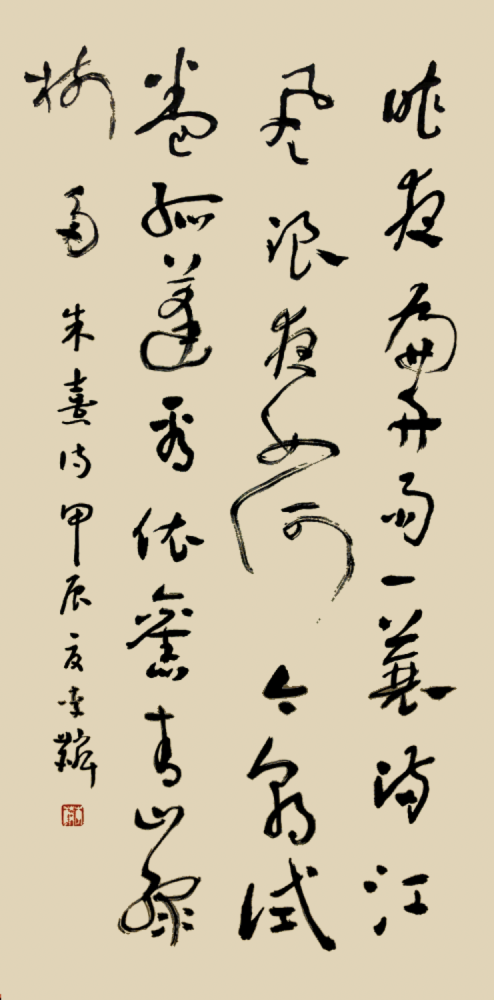 昨夜扁舟雨一蓑滿江
風浪夜如何今朝試
卷孤蓬看依舊青山綠
樹多 朱熹詩甲辰夏